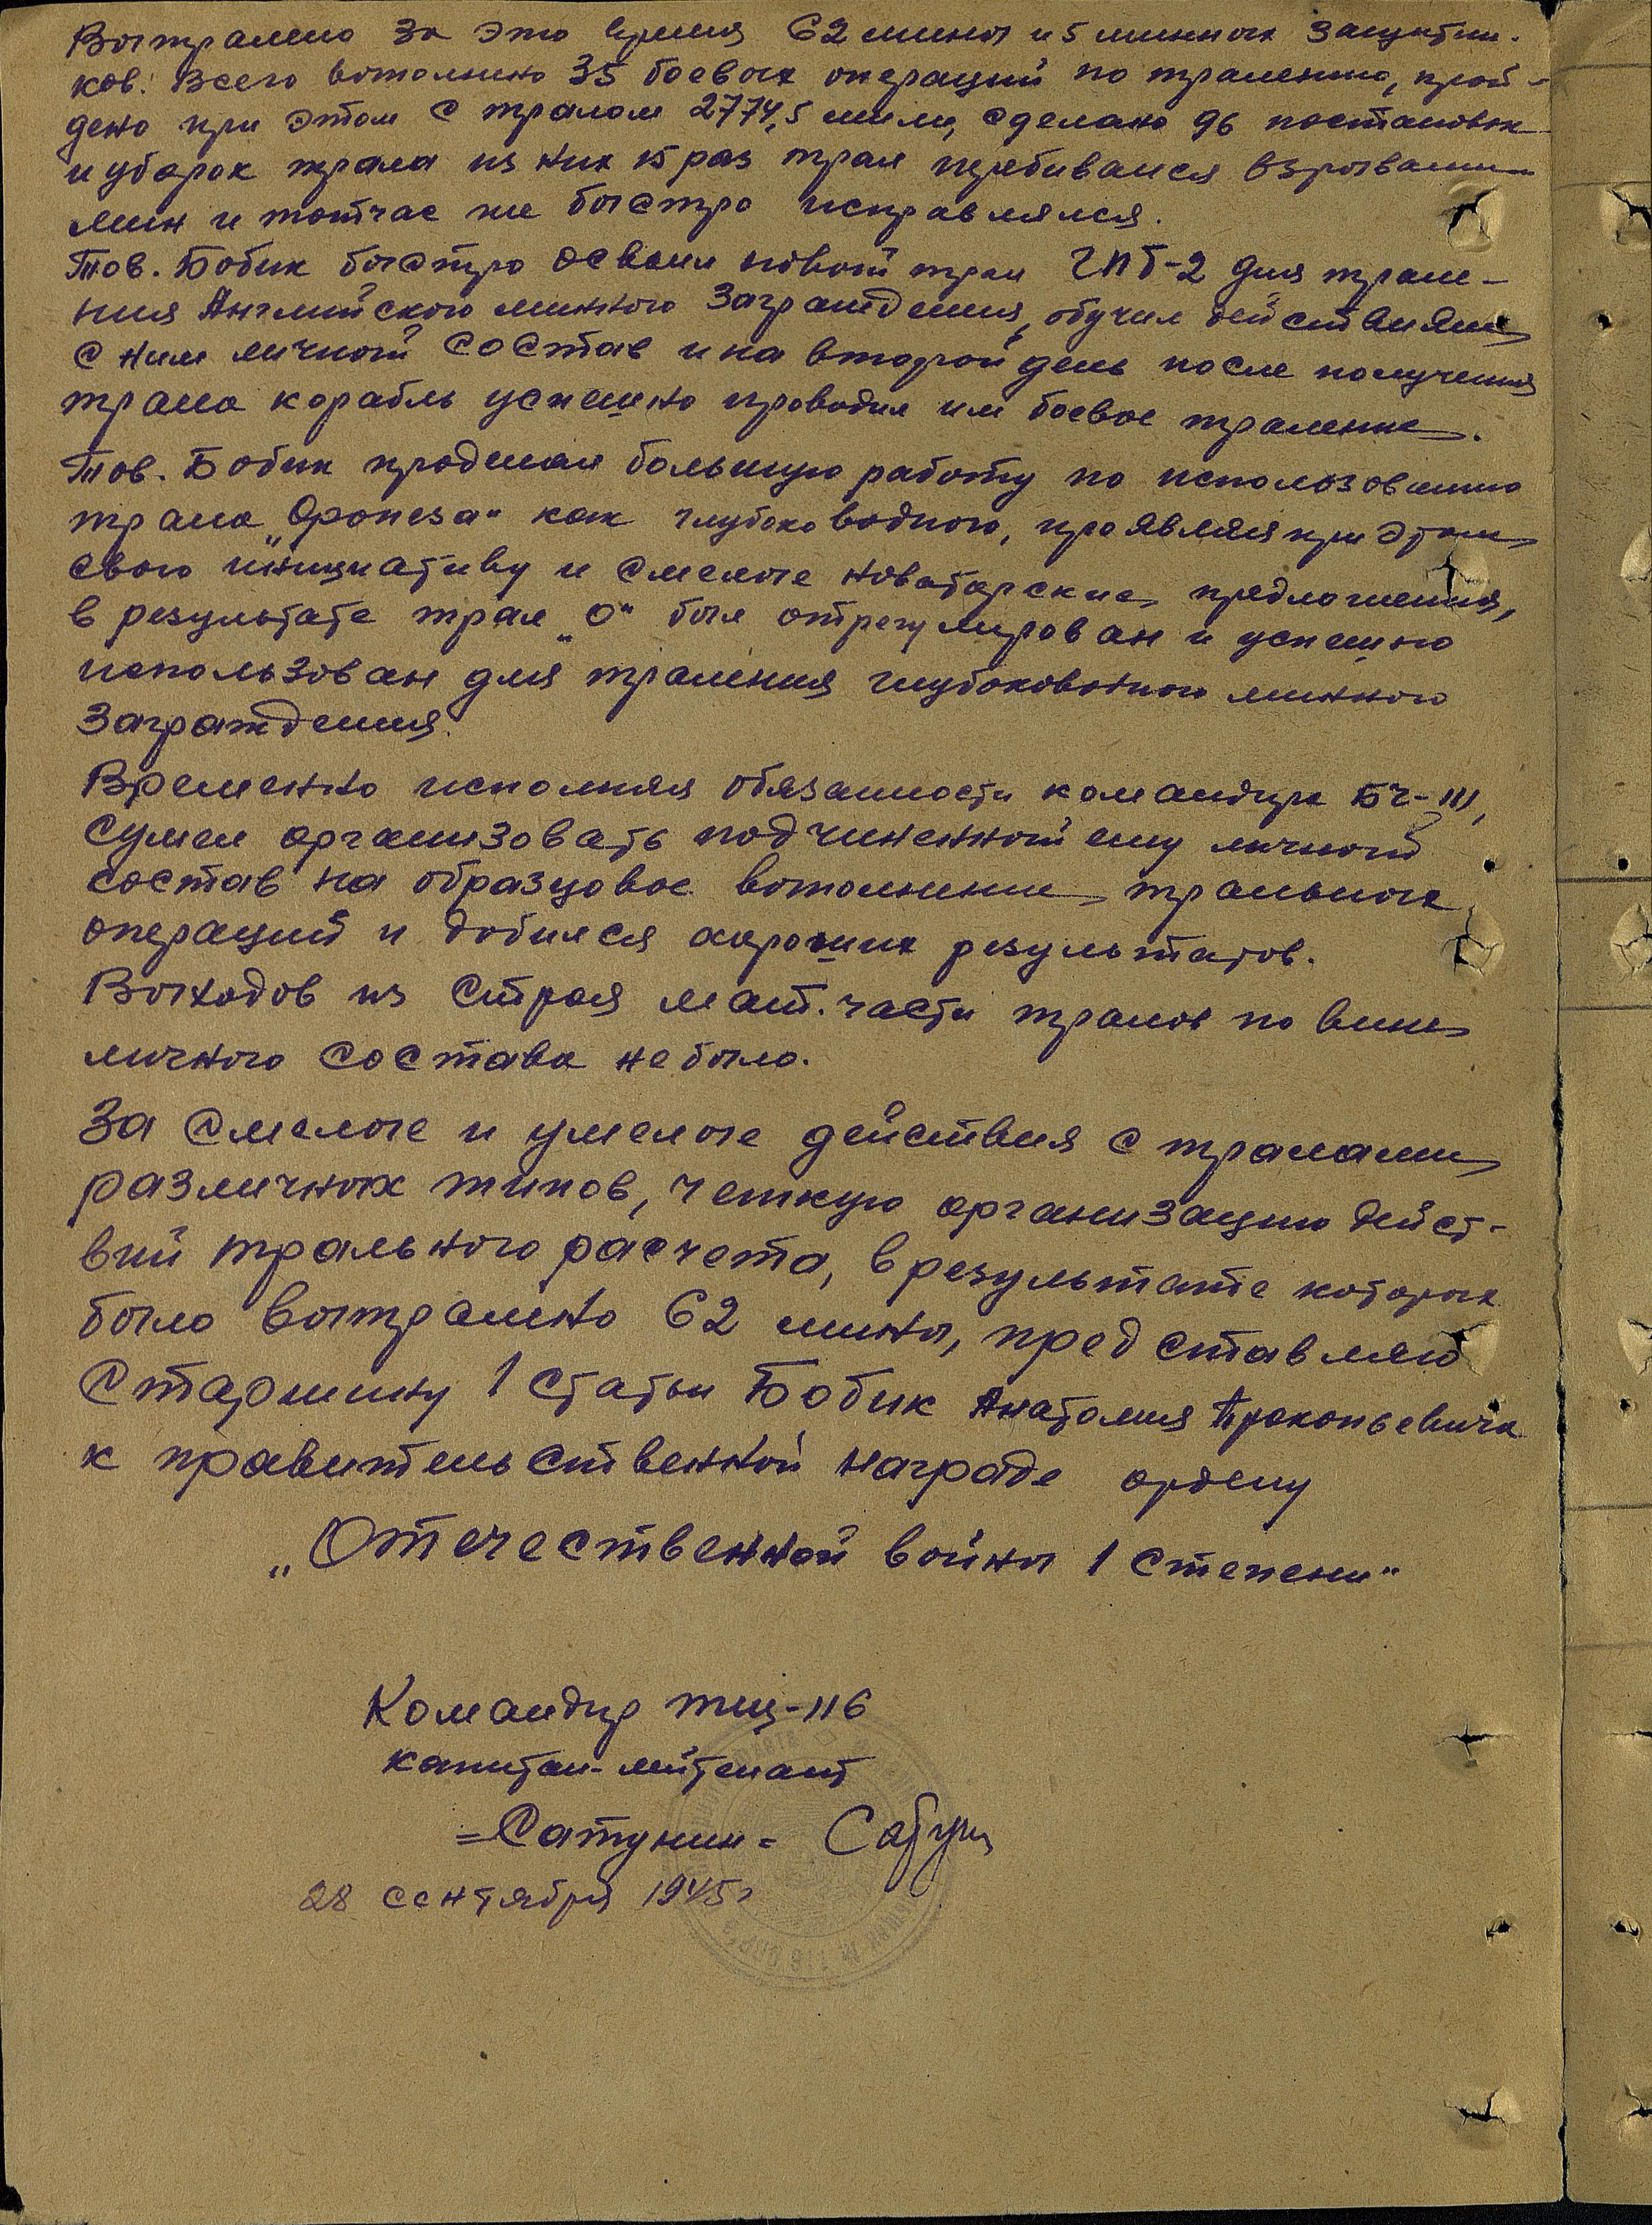 Вытралено за это время 62 мины и 5 минных защитни-
ков. Всего выполнено 35 боевых операций по тралению, прой-
дено при этом с тралом 2774,5 мили, сделано 96 постановок
и уборок трала из них 15 раз трал перебивался взрывами
мин и тотчас же быстро исправлялся.
Тов. Бобик быстро освоил новый трал ГПБ-2 для трале-
ния Английского минного заграждения, обучил действиям
с ним личный состав и на второй день после получения
трала корабль успешно проводил им боевое траление.
Тов. Бобик проделал большую работу по использованию
трала „Оропеза“ как глубоководного, проявляя при этом
свою инициативу и смелые новаторские предложения,
в результате трал „О“ был отрегулирован и успешно
использован для траления глубоководного минного
заграждения.
Временно исполняя обязанности командира БЧ-III,
сумел организовать подчиненный ему личный
состав на образцовое выполнение тральных
операций и добился хороших результатов.
Выходов из строя мат. части тралов по вине
личного состава не было.
За смелые и умелые действия с тралами
различных типов, четкую организацию дейст-
вий трального расчета, в результате которых
было вытралено 62 мины, представляю
Старшину 1 статьи Бобик Анатолия Прокопьевича
к правительственной награде ордену
„Отечественной войны 1 степени“
Командир тщ-116
капитан-лейтенант
=Сатунин=
28 сентября 1945г